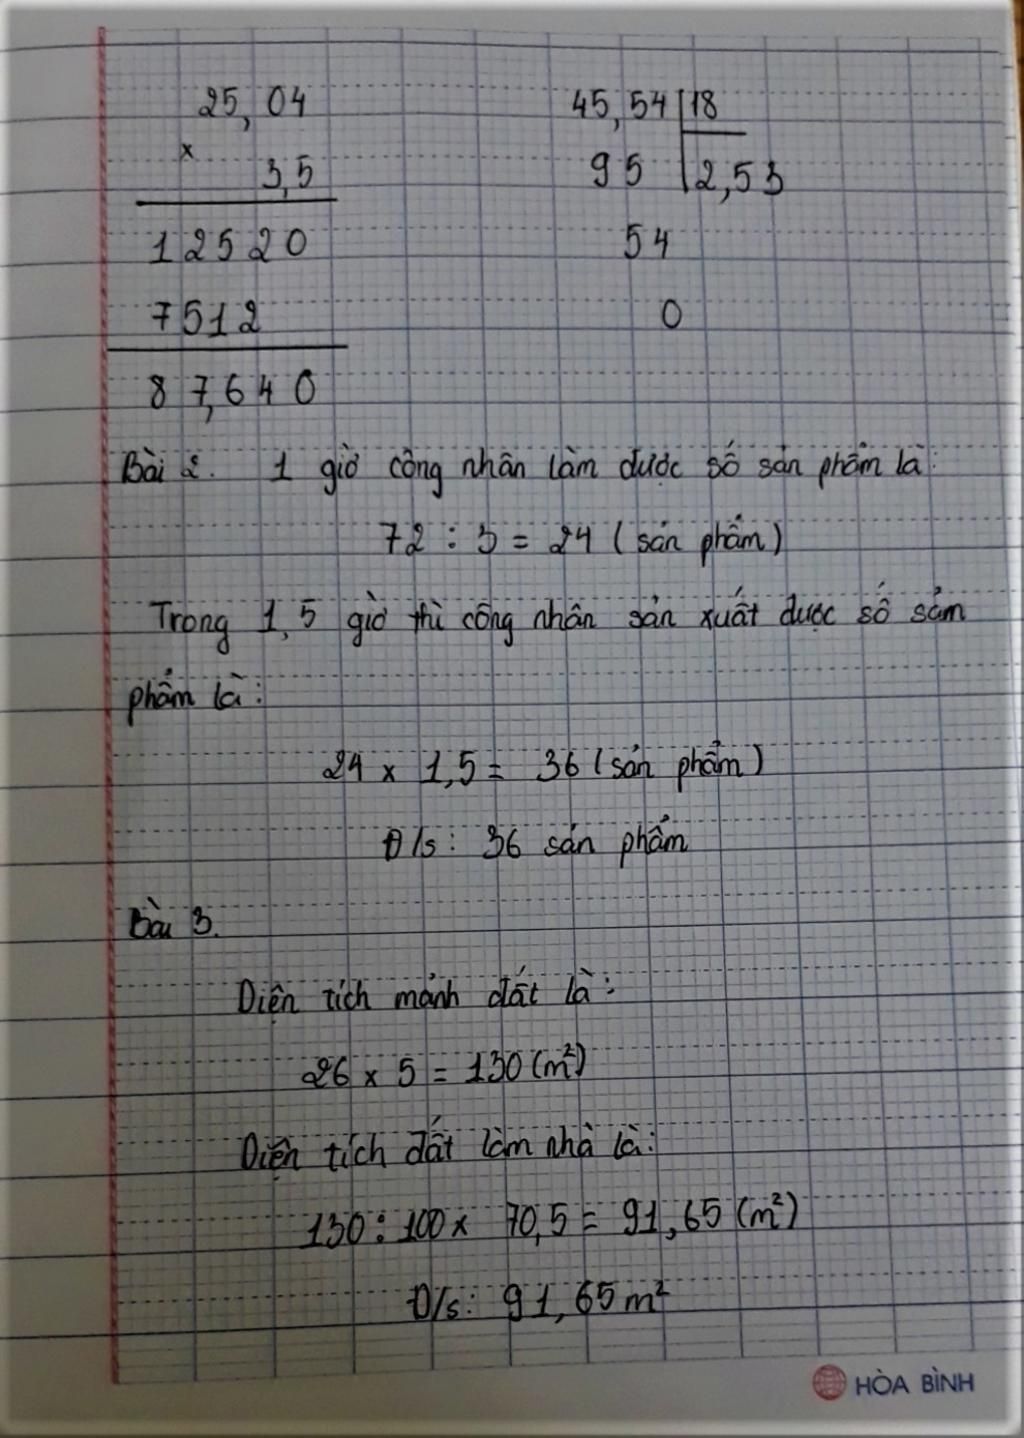 25,04
x
3,5
12520
7512
87,640
45,54 18
95 2,53
54
0
Bài 2. 1 giờ công nhân làm được số sản phẩm là:
72 : 3 = 24 (sản phẩm)
Trong 1,5 giờ thì công nhân sản xuất được số sảm
phẩm là:
24 x 1,5 = 36 (sản phẩm)
Đ/s: 36 sản phẩm
Bài 3.
Diện tích mảnh đất là:
26 x 5 = 130 (m²)
Diện tích đất làm nhà là:
130 : 100 x 70,5 = 91,65 (m²)
Đ/s: 91,65 m²
HÒA BÌNH